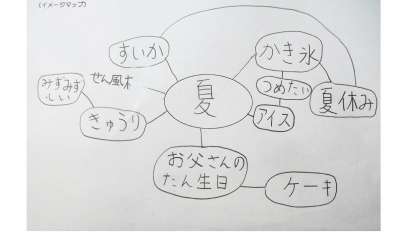 (イメージマップ)
すいか
かき氷
みずみず
しい
せん風木
つめたい
夏
夏休み
きゅうり
アイス
お父さんの
たん生日
ケーキ